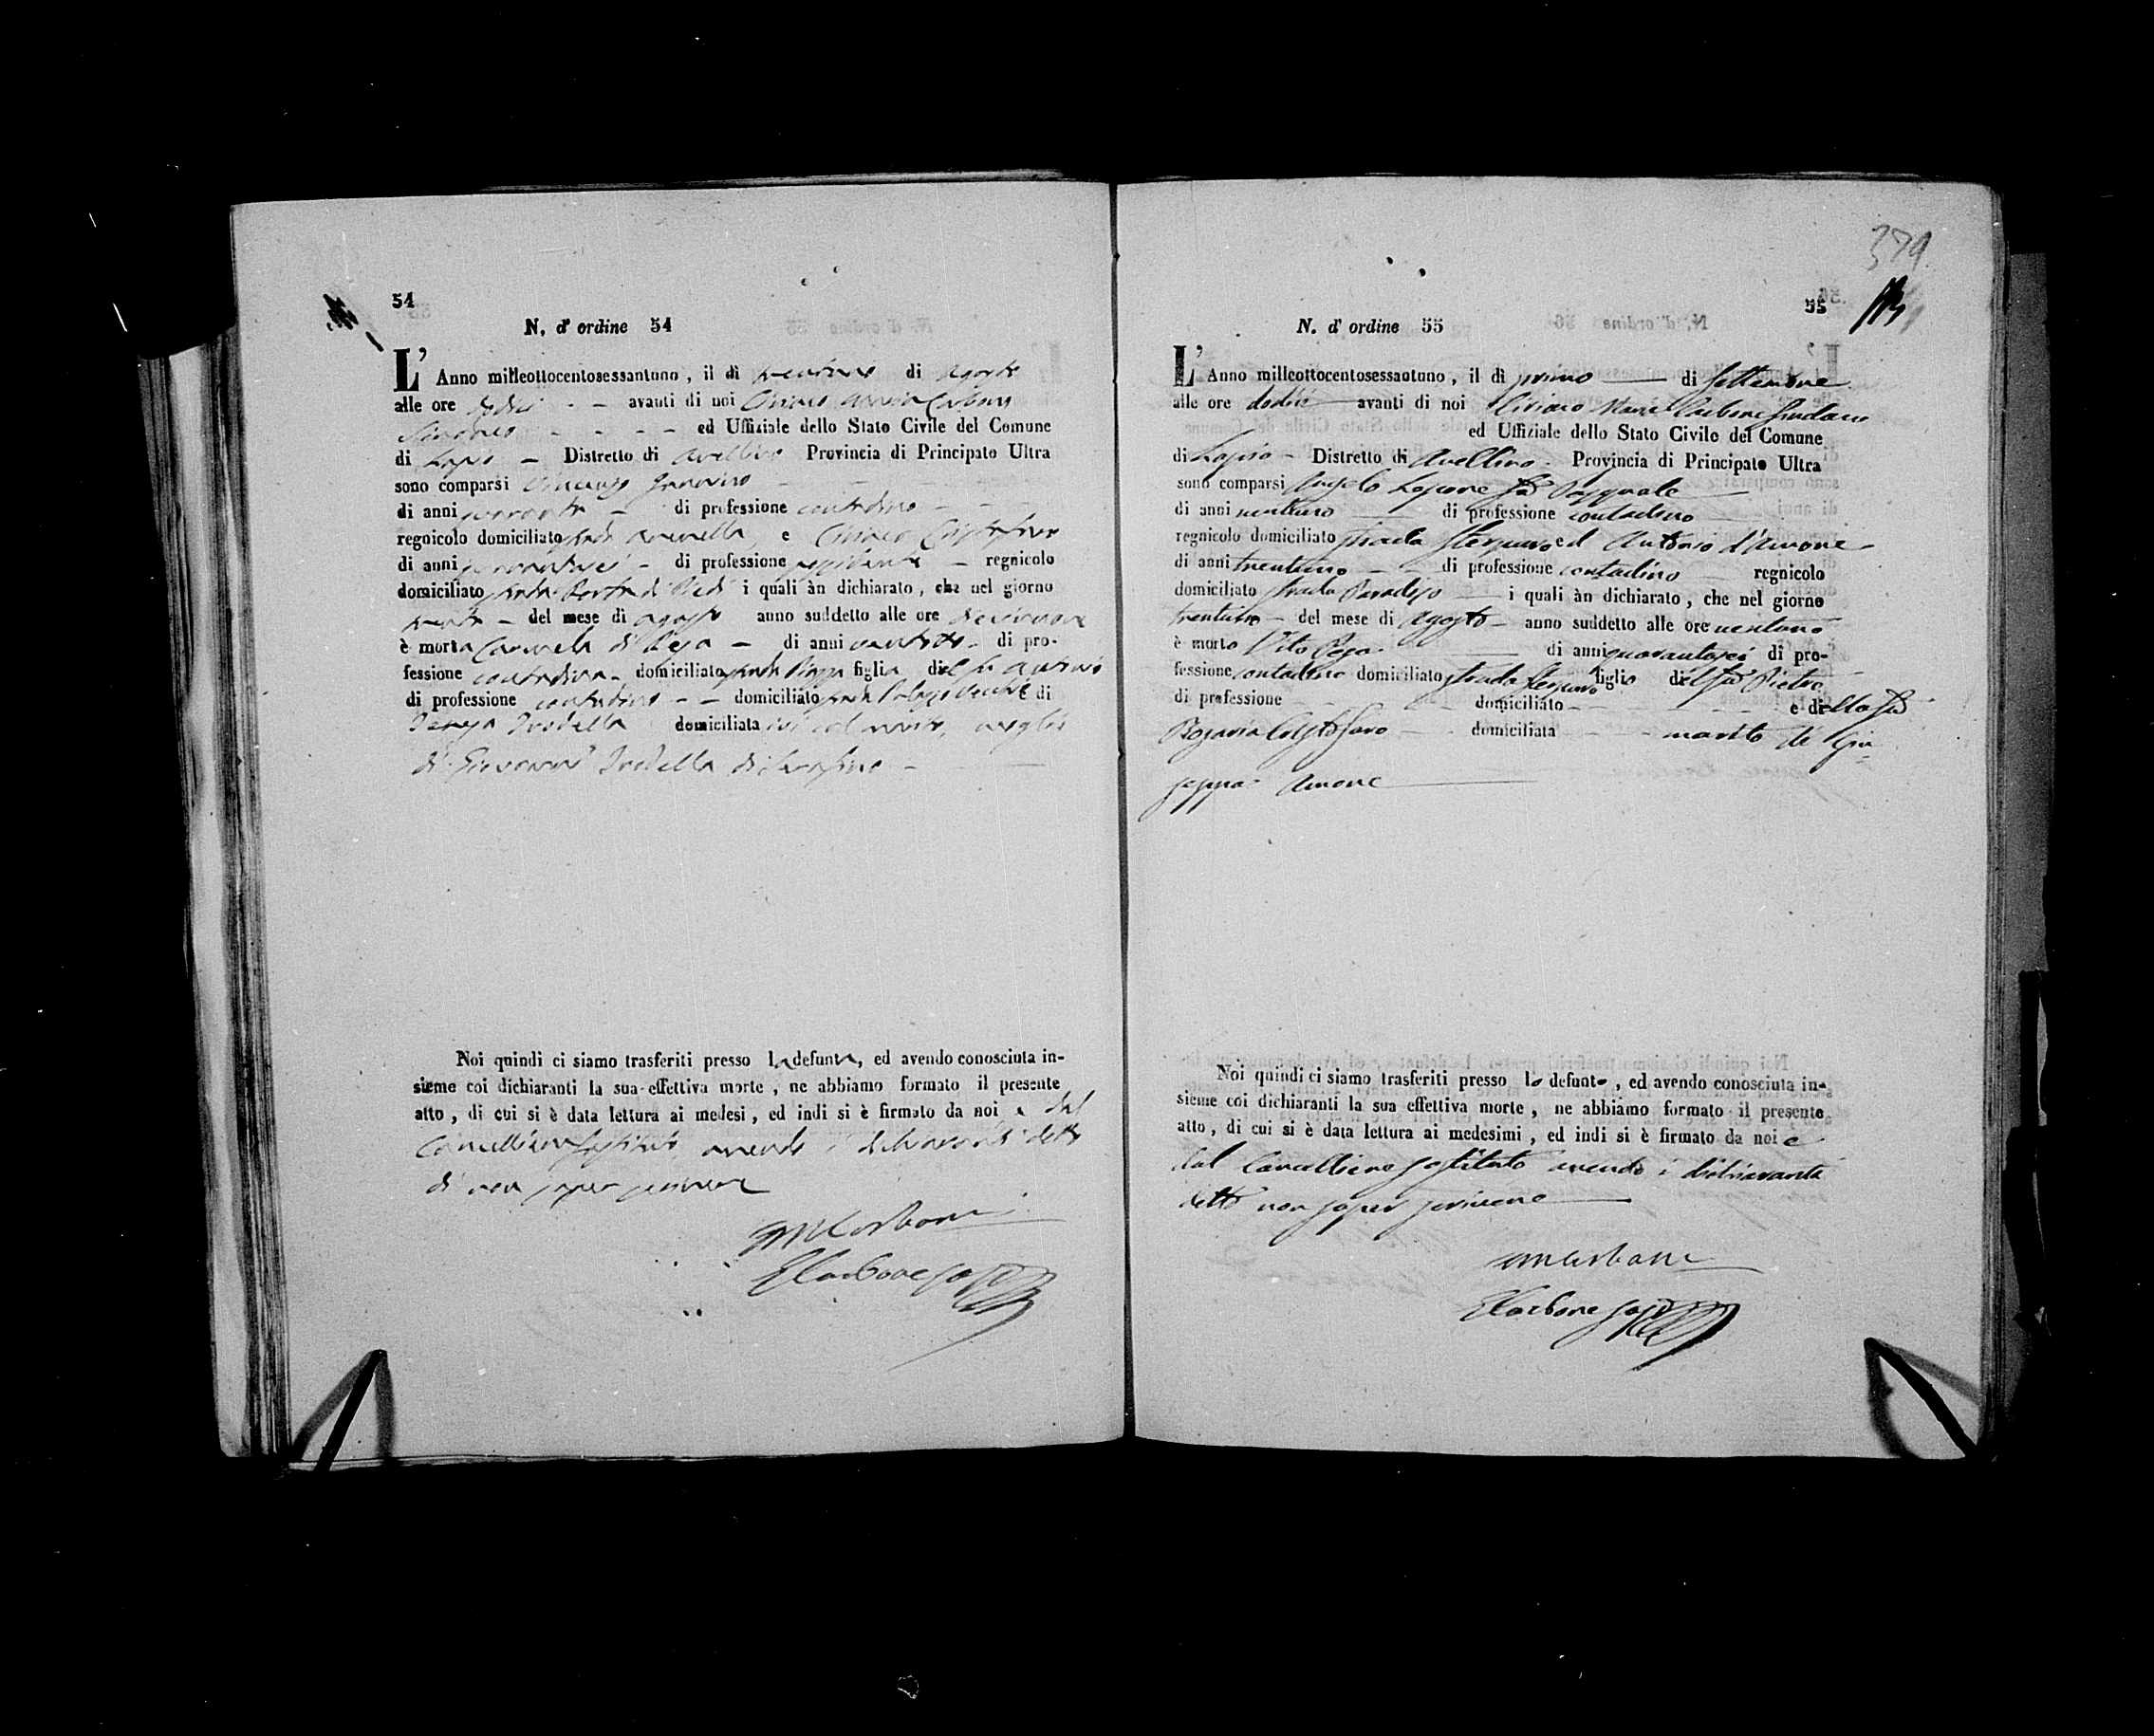 54
N. d' ordine 54
L' Anno milleottocentosessantuno, il dì trentuno di Agosto
alle ore dodici - - avanti di noi Ciriaco Maria Carbone
Sindaco - - - - ed Uffiziale dello Stato Civile del Comune
di Lapio - Distretto di Avellino Provincia di Principato Ultra
sono comparsi Vincenzo
di anni quaranta - di professione contadino - -
regnicolo domiciliato strada e Ciriaco Cristofaro
di anni - di professione - regnicolo
domiciliato strada Porta di Piedi i quali àn dichiarato, che nel giorno
trenta - del mese di agosto anno suddetto alle ore diecinove
è morta Carmela di Rega - di anni ventotto - di pro-
fessione contadina - domiciliato strada Piazza figlia del fu Antonio
di professione contadino - - domiciliato strada Palazzo e di
Teresa domiciliata ivi col marito, moglie
di Giovanni di Serafino -
Noi quindi ci siamo trasferiti presso la defunta, ed avendo conosciuta in-
sieme coi dichiaranti la sua effettiva morte, ne abbiamo formato il presente
atto, di cui si è data lettura ai medesi, ed indi si è firmato da noi e dal
Cancelliere sostituto avendo i dichiaranti detto
di non saper scrivere
CMCarbone
ECarbone sost
379
55
N. d' ordine 55
L' Anno milleottocentosessantuno, il dì primo — di Settembre
alle ore dodici — avanti di noi Ciriaco Maria Carbone Sindaco
ed Uffiziale dello Stato Civile del Comune
di Lapio - Distretto di Avellino - Provincia di Principato Ultra
sono comparsi Angelo Lapone fu Pasquale —
di anni ventuno — di professione contadino —
regnicolo domiciliato strada Sterparo ed Antonio d'Amore
di anni trentuno - - di professione contadino — regnicolo
domiciliato strada Paradiso — i quali àn dichiarato, che nel giorno
trentuno - del mese di agosto - anno suddetto alle ore ventuno
è morto Vito Rega — di anni quarantasei di pro-
fessione contadino domiciliato strada Sterparo figlio del fu Pietro
di professione - - - domiciliato - - - e della fu
Rosaria Cristofaro - - domiciliata - - marito di Giu-
seppa Amore —
Noi quindi ci siamo trasferiti presso lo defunto, ed avendo conosciuta in-
sieme coi dichiaranti la sua effettiva morte, ne abbiamo formato il presente
atto, di cui si è data lettura ai medesimi, ed indi si è firmato da noi e
dal Cancelliere sostituto avendo i dichiaranti
detto non saper scrivere —
CMCarbone
ECarbone sost